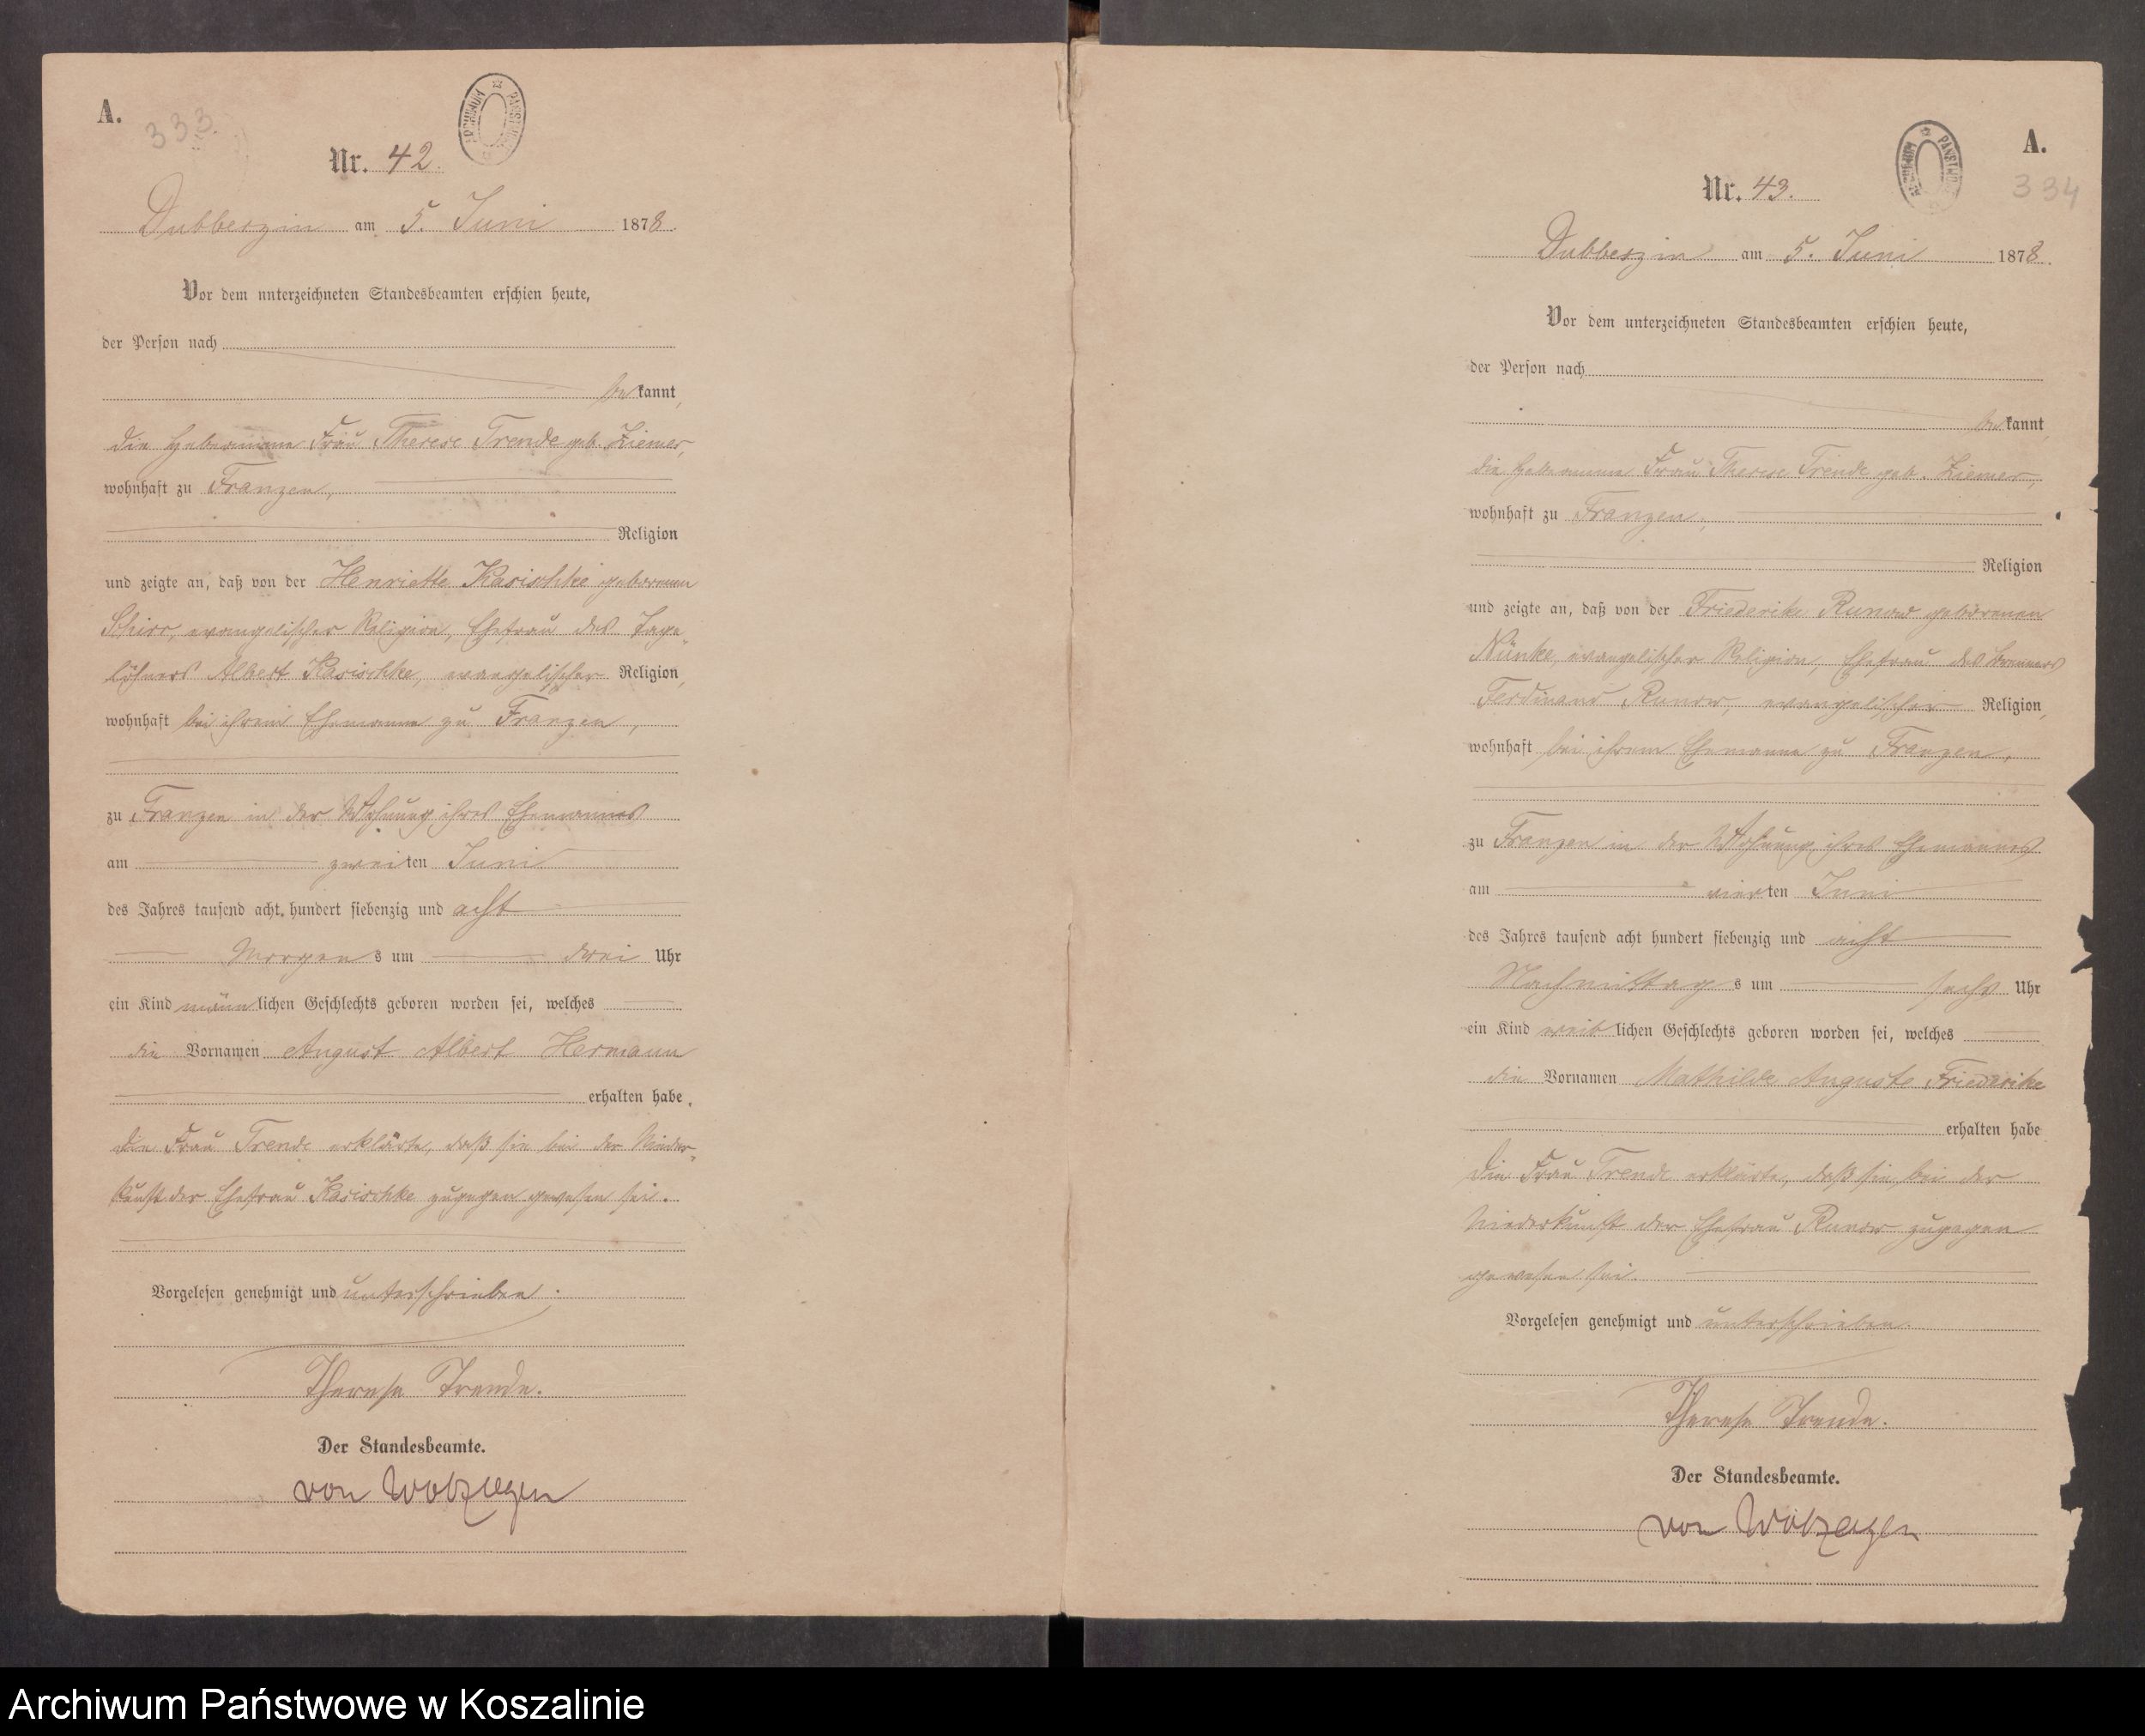 A.
333
ARCHIWUM PAŃSTWOWE
Nr. 42.
Dubberzin am 5. Juni 1878.
Vor dem unterzeichneten Standesbeamten erschien heute,
der Person nach
bekannt,
die Hebamme Frau Therese Trende geb. Ziemer,
wohnhaft zu Franzen,
Religion
und zeigte an, daß von der Henriette Kasischke geborenen
Schirr, evangelischer Religion, Ehefrau des Tage-
löhners Albert Kasischke, evangelischer Religion,
wohnhaft bei ihrem Ehemanne zu Franzen,
zu Franzen in der Wohnung ihres Ehemannes
am zweiten Juni
des Jahres tausend acht hundert siebenzig und acht
Morgens um drei Uhr
ein Kind männlichen Geschlechts geboren worden sei, welches
die Vornamen August Albert Hermann
erhalten habe.
Die Frau Trende erklärte, daß sie bei der Nieder-
kunft der Ehefrau Kasischke zugegen gewesen sei.
Vorgelesen genehmigt und unterschrieben.
Therese Trende.
Der Standesbeamte.
von
A.
334
ARCHIWUM PAŃSTWOWE
Nr. 43.
Dubberzin am 5. Juni 1878.
Vor dem unterzeichneten Standesbeamten erschien heute,
der Person nach
bekannt,
die Hebamme Frau Therese Trende geb. Ziemer,
wohnhaft zu Franzen,
Religion
und zeigte an, daß von der Friederike Runow geborenen
Nünke, evangelischer Religion, Ehefrau des Brenners
Ferdinand Runow, evangelischer Religion,
wohnhaft bei ihrem Ehemanne zu Franzen,
zu Franzen in der Wohnung ihres Ehemannes
am vierten Juni
des Jahres tausend acht hundert siebenzig und acht
Nachmittags um sechs Uhr
ein Kind weiblichen Geschlechts geboren worden sei, welches
die Vornamen Mathilde Auguste Friederike
erhalten habe
Die Frau Trende erklärte, daß sie bei der
Niederkunft der Ehefrau Runow zugegen
gewesen sei.
Vorgelesen genehmigt und unterschrieben.
Therese Trende.
Der Standesbeamte.
von
Archiwum Państwowe w Koszalinie